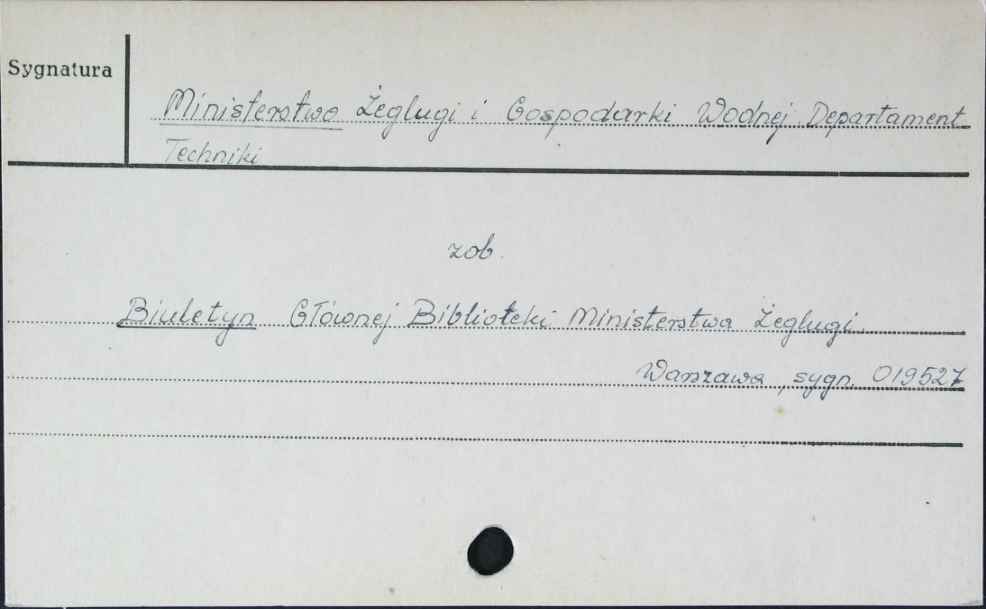 Sygnatura
Ministerstwo Żeglugi i Gospodarki Wodnej. Departament
Techniki
zob.
Biuletyn Głównej Biblioteki Ministerstwa Żeglugi.
Warszawa, sygn. 019527